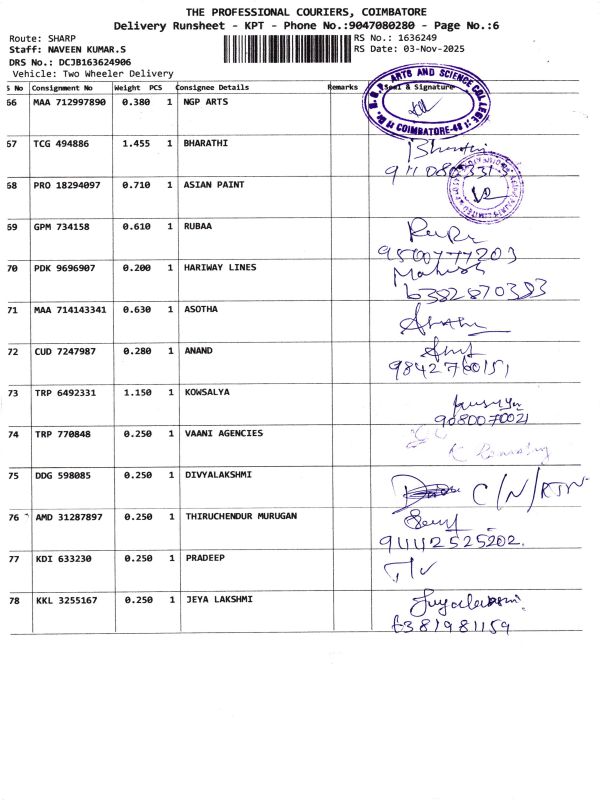 THE PROFESSIONAL COURIERS, COIMBATORE
Delivery Runsheet - KPT - Phone No.:9047080280 - Page No.:6
Route: SHARP RS No.: 1636249
Staff: NAVEEN KUMAR.S RS Date: 03-Nov-2025
DRS No.: DCJB163624906
Vehicle: Two Wheeler Delivery
S No Consignment No Weight PCS Consignee Details Remarks Seal & Signature
66 MAA 712997890 0.380 1 NGP ARTS
ARTS AND SCIENCE COLLEGE
COIMBATORE-48
67 TCG 494886 1.455 1 BHARATHI Bharathi
68 PRO 18294097 0.710 1 ASIAN PAINT
69 GPM 734158 0.610 1 RUBAA
9500777203
70 PDK 9696907 0.200 1 HARIWAY LINES Mahesh
6382870383
71 MAA 714143341 0.630 1 ASOTHA
72 CUD 7247987 0.280 1 ANAND
9842760151
73 TRP 6492331 1.150 1 KOWSALYA
9080070021
74 TRP 770848 0.250 1 VAANI AGENCIES
75 DDG 598085 0.250 1 DIVYALAKSHMI C/N/RTN
76 AMD 31287897 0.250 1 THIRUCHENDUR MURUGAN
9442525202.
77 KDI 633230 0.250 1 PRADEEP
78 KKL 3255167 0.250 1 JEYA LAKSHMI Jeyalakshmi
6381981159